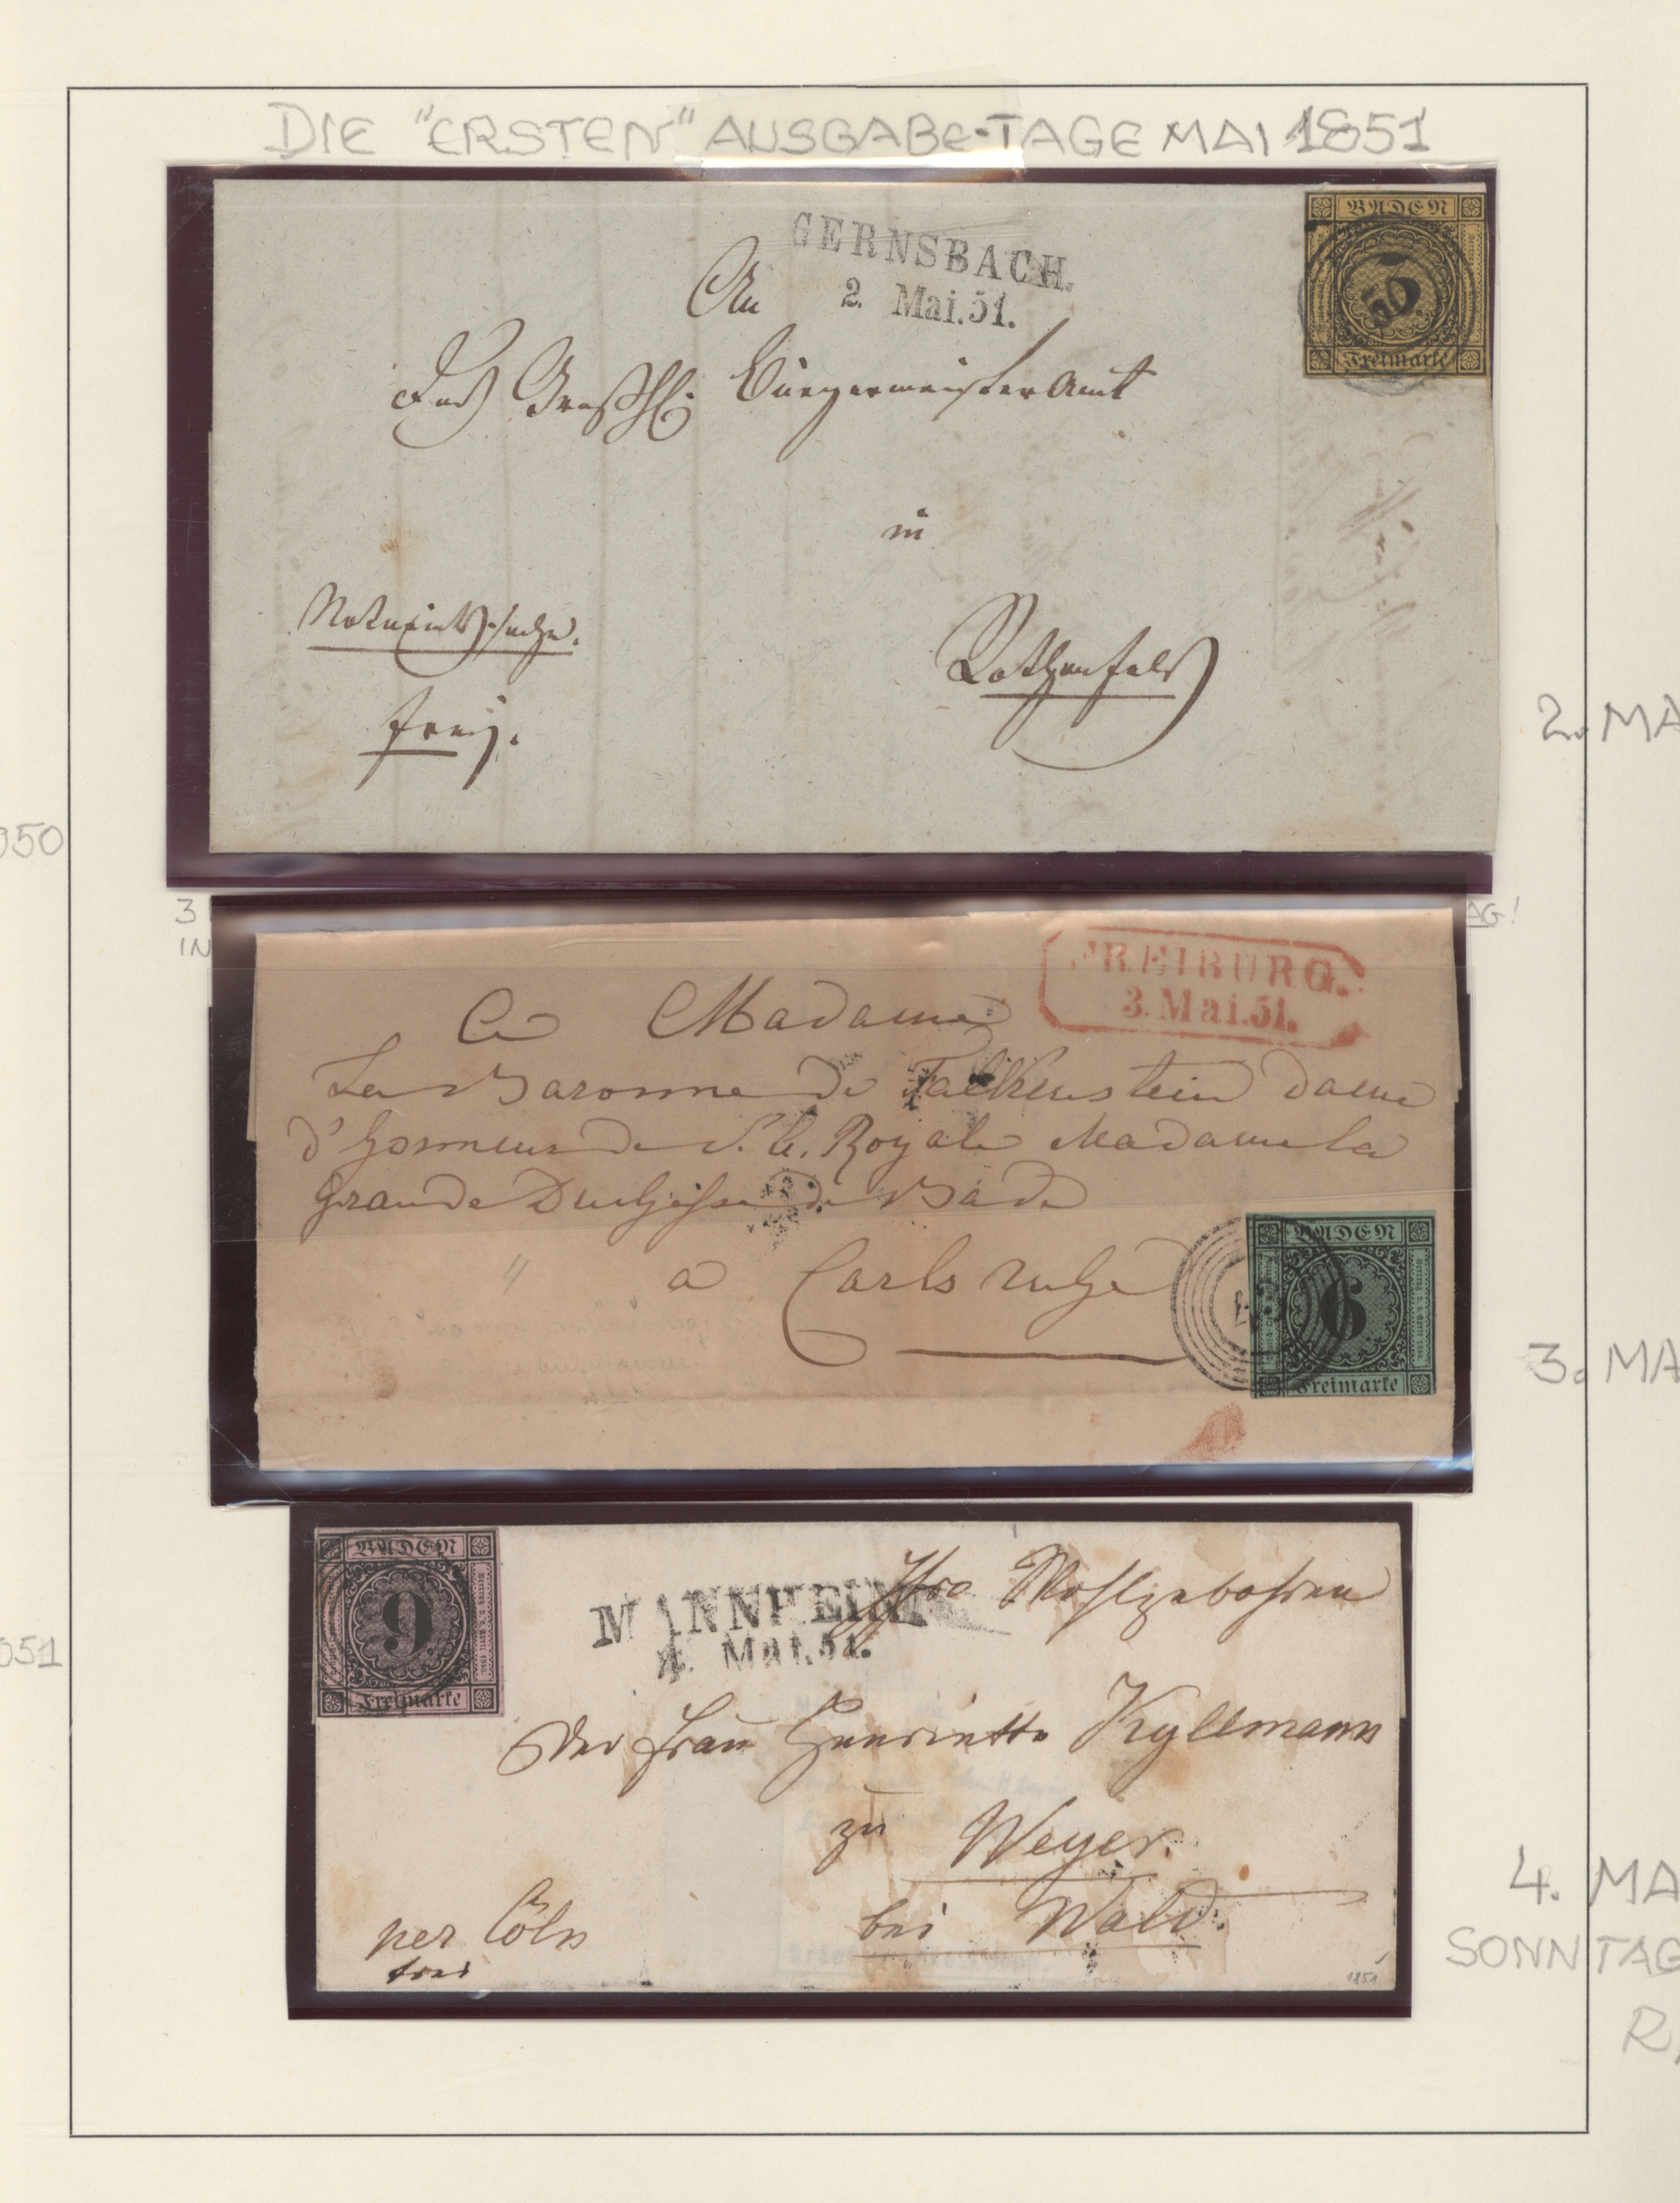 DIE "ERSTEN" AUSGABE-TAGE MAI 1851
GERNSBACH.
2. Mai.51.
BADEN
Freimarke
An
das Großhl: Bürgermeister Amt
in
Notariatssache.
Rothenfels
frei.
2. MA
050
3
IN
AG!
FREIBURG.
3. Mai.51.
A Madame
La Baronne de Falkenstein Dame
d'honneur de S. A. Royale Madame la
Grande Duchesse de Bade
a Carlsruhe
BADEN
6
Freimarke
3. MA
BADEN
9
Freimarke
MANNHEIM
4. Mai.51.
Ihro Wohlgebohren
Der Frau Henriette Kyllmann
zu Weyer.
bei Wald.
per Cöln
frei
1851
051
4. MA
SONNTAG
R